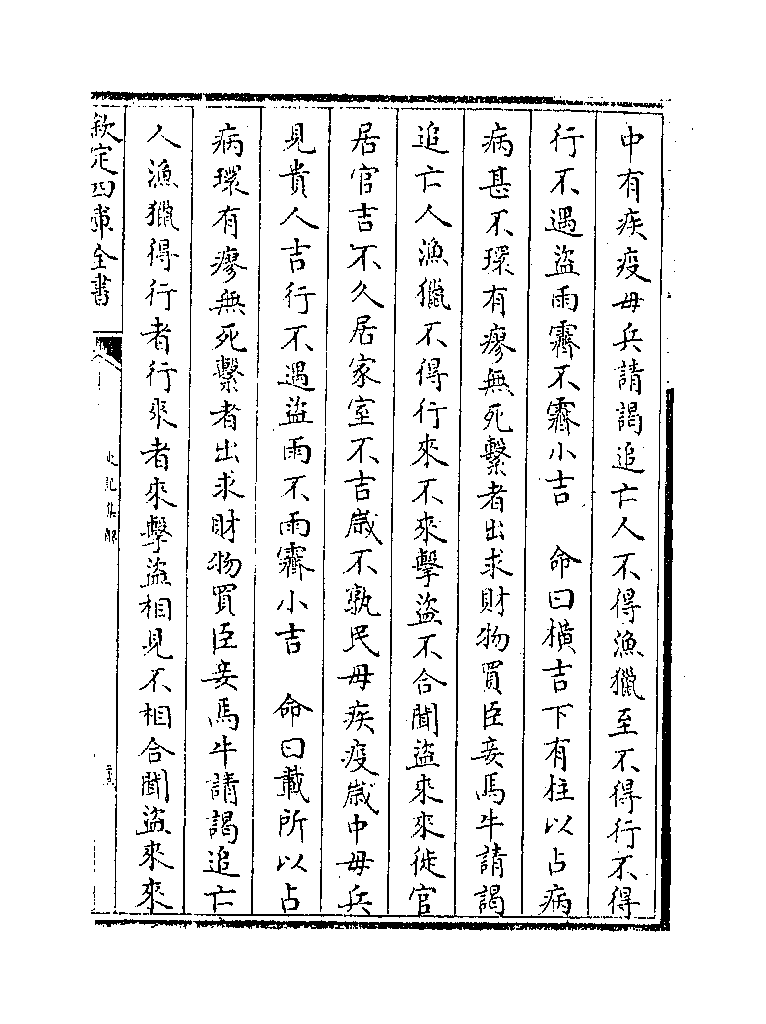 中有疾疫毋兵請謁追亡人不得漁獵至不得行不得
行不遇盜雨霽不霽小吉　命曰橫吉下有柱以占病
病甚不環有瘳無死繫者出求財物買臣妾馬牛請謁
追亡人漁獵不得行來不來擊盜不合聞盜來來徙官
居官吉不久居家室不吉歲不孰民毋疾疫歲中毋兵
見貴人吉行不遇盜雨不雨霽小吉　命曰載所以占
病環有瘳無死繫者出求財物買臣妾馬牛請謁追亡
人漁獵得行者行來者來擊盜相見不相合聞盜來來
欽定四庫全書
史記集解